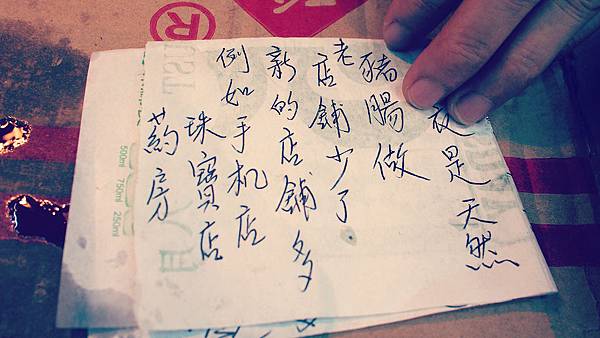 是天然
豬腸做
老店鋪少了
新的店鋪多
例如手机店
珠寶店
药房
500ml
750ml
250ml
®